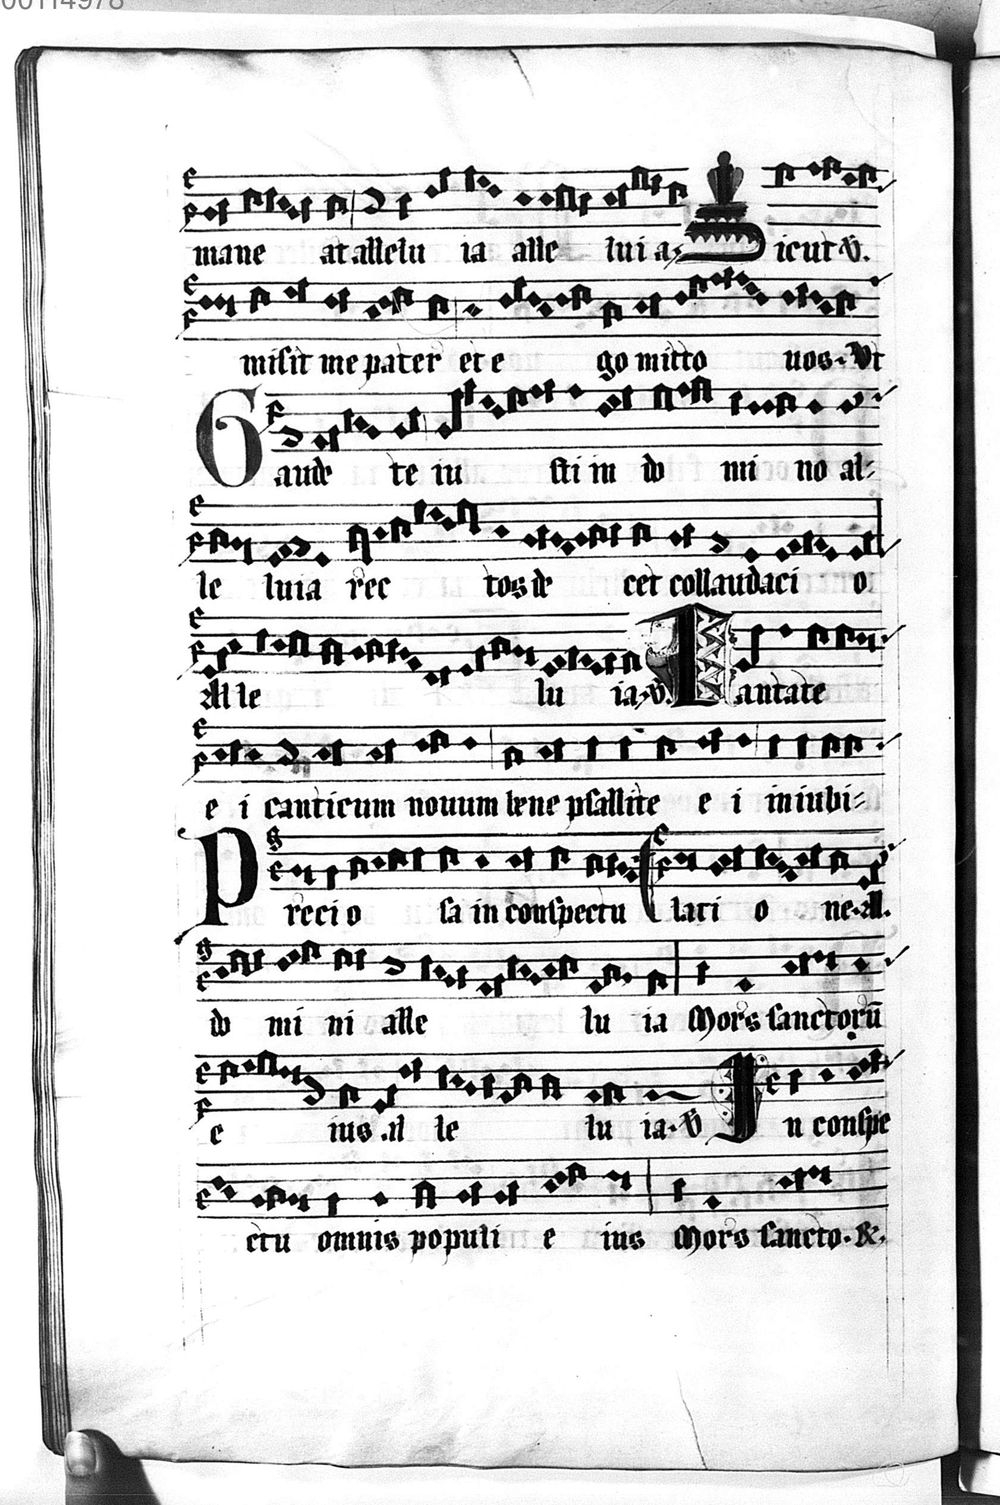 00114978
mane at allelu ia alle lui a Sicut v̄.
misit me pater et e go mitto uos. Vt
Gaude te iu sti in do mi no al-
le luia rec tos de cet collaudaci o
All le lu ia. v̄. Cantate
e i canticum nouum bene psallite e i in iubi-
Precio sa in conspectu laci o ne. All.
do mi ni alle lu ia Mors sanctorū
e ius .al le lu ia. v̄ In conspe
ctu omnis populi e ius Mors sancto. &.